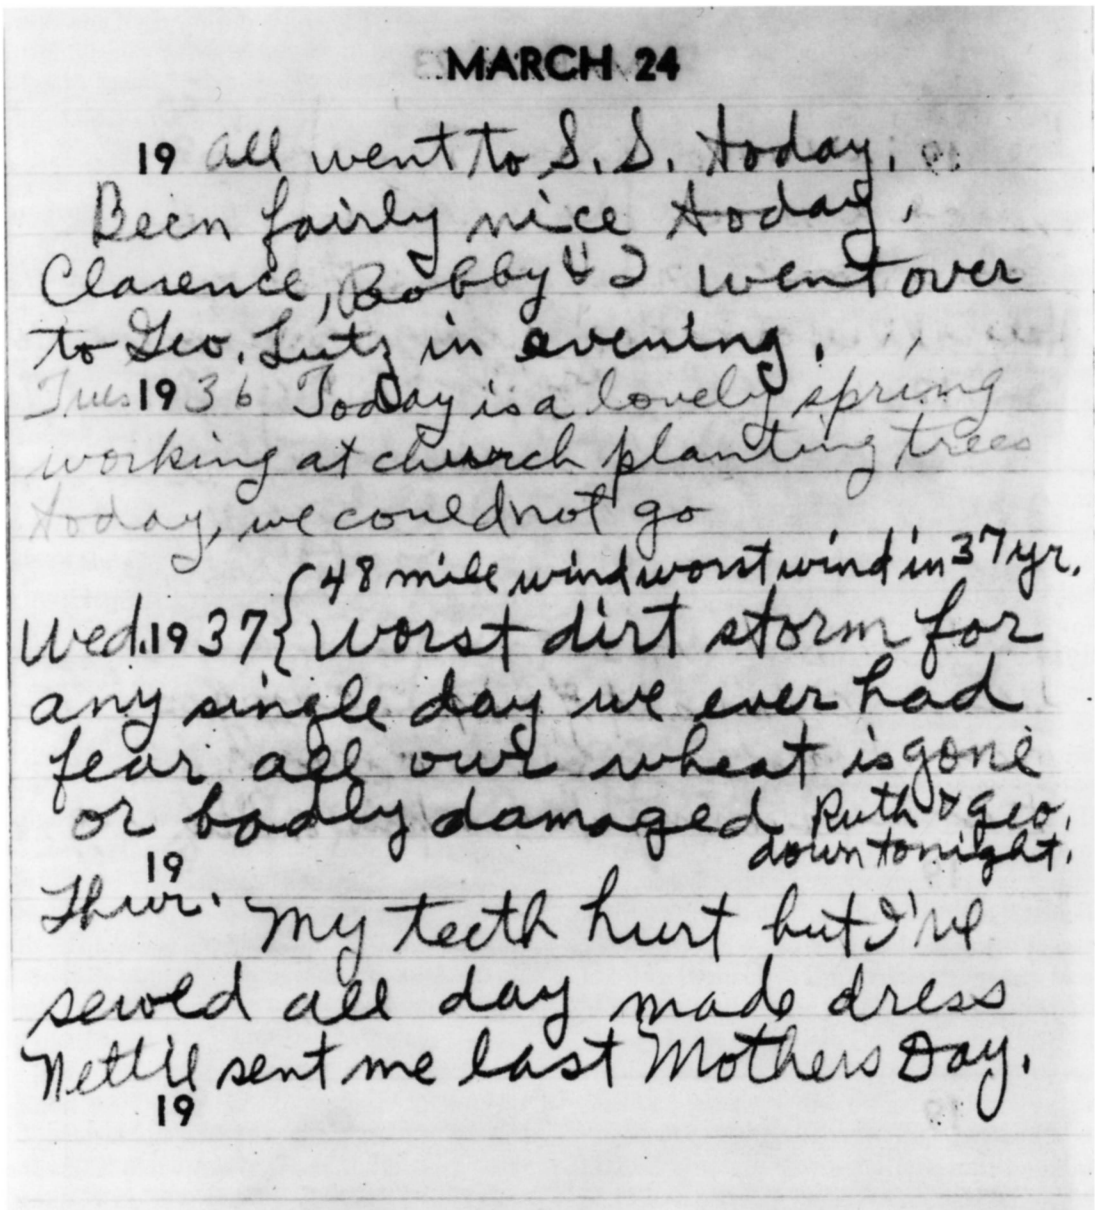 MARCH 24
19 All went to S. S. today.
Been fairly nice today.
Clarence, Bobby & I went over
to Geo. Lutz in evening.
Tues. 1936 Today is a lovely spring
working at church planting trees
today, we could not go
{48 mile wind worst wind in 37 yr.
Wed. 1937 { Worst dirt storm for
any single day we ever had
fear all our wheat is gone
or badly damaged. Ruth & Geo.
down tonight.
19
Thur. My teeth hurt but I've
sewed all day made dress
Nettie sent me last Mothers Day.
19